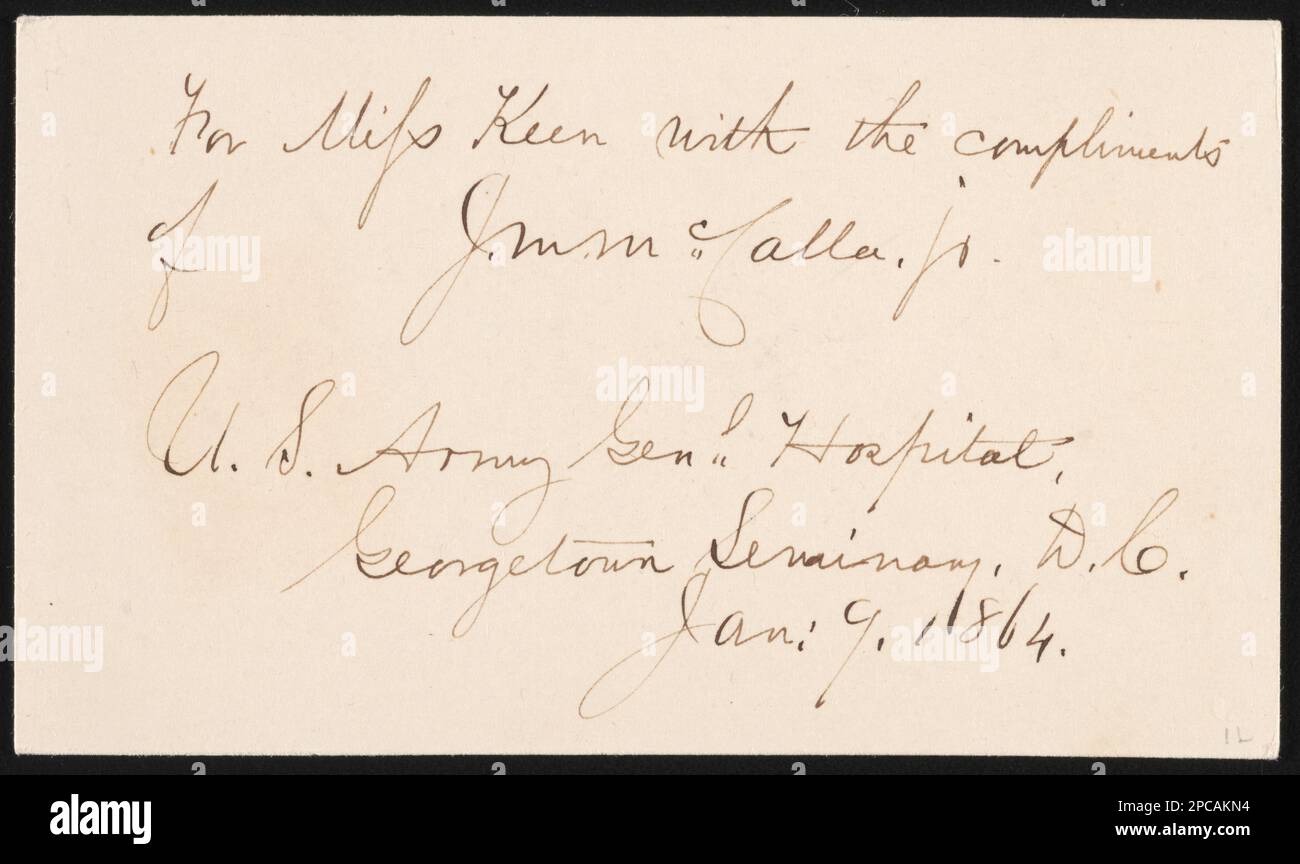 For Miſs Keen with the compliments
of J. M. McCalla, jr.
U. S. Army Genl. Hospital,
Georgetown Seminary, D. C.
Jan: 9, 1864.
1L
alamy
Image ID: 2PCAKN4
www.alamy.com